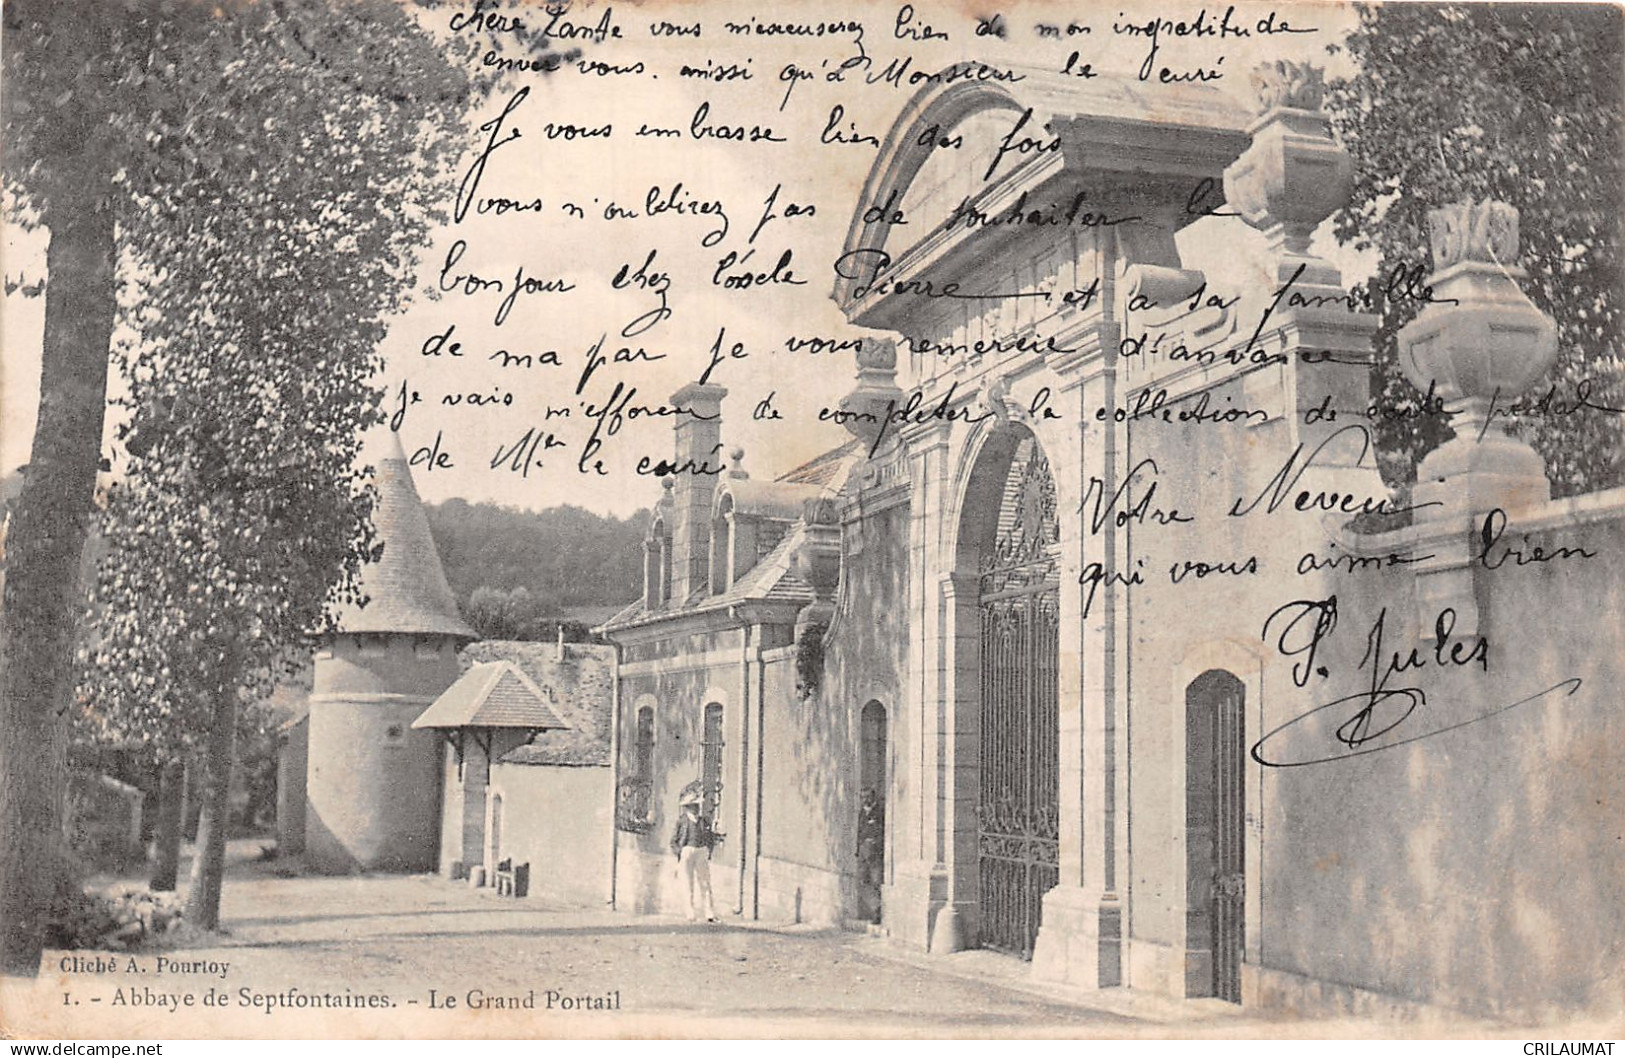 chère Tante vous m'excuserez bien de mon ingratitude
enver vous. ainssi qu'a Monsieur le curé
Je vous embrasse bien des fois
vous n'oublirez pas de souhaiter le
bonjour chez l'oncle Pierre et a sa famille
de ma par je vous remercie d'anvance
je vais m'efforcer de completer la collection de carte postal
de Mr. le curé
Votre Neveu
qui vous aime bien
P. Jules
Cliché A. Pourtoy
1. - Abbaye de Septfontaines. - Le Grand Portail
www.delcampe.net
CRILAUMAT